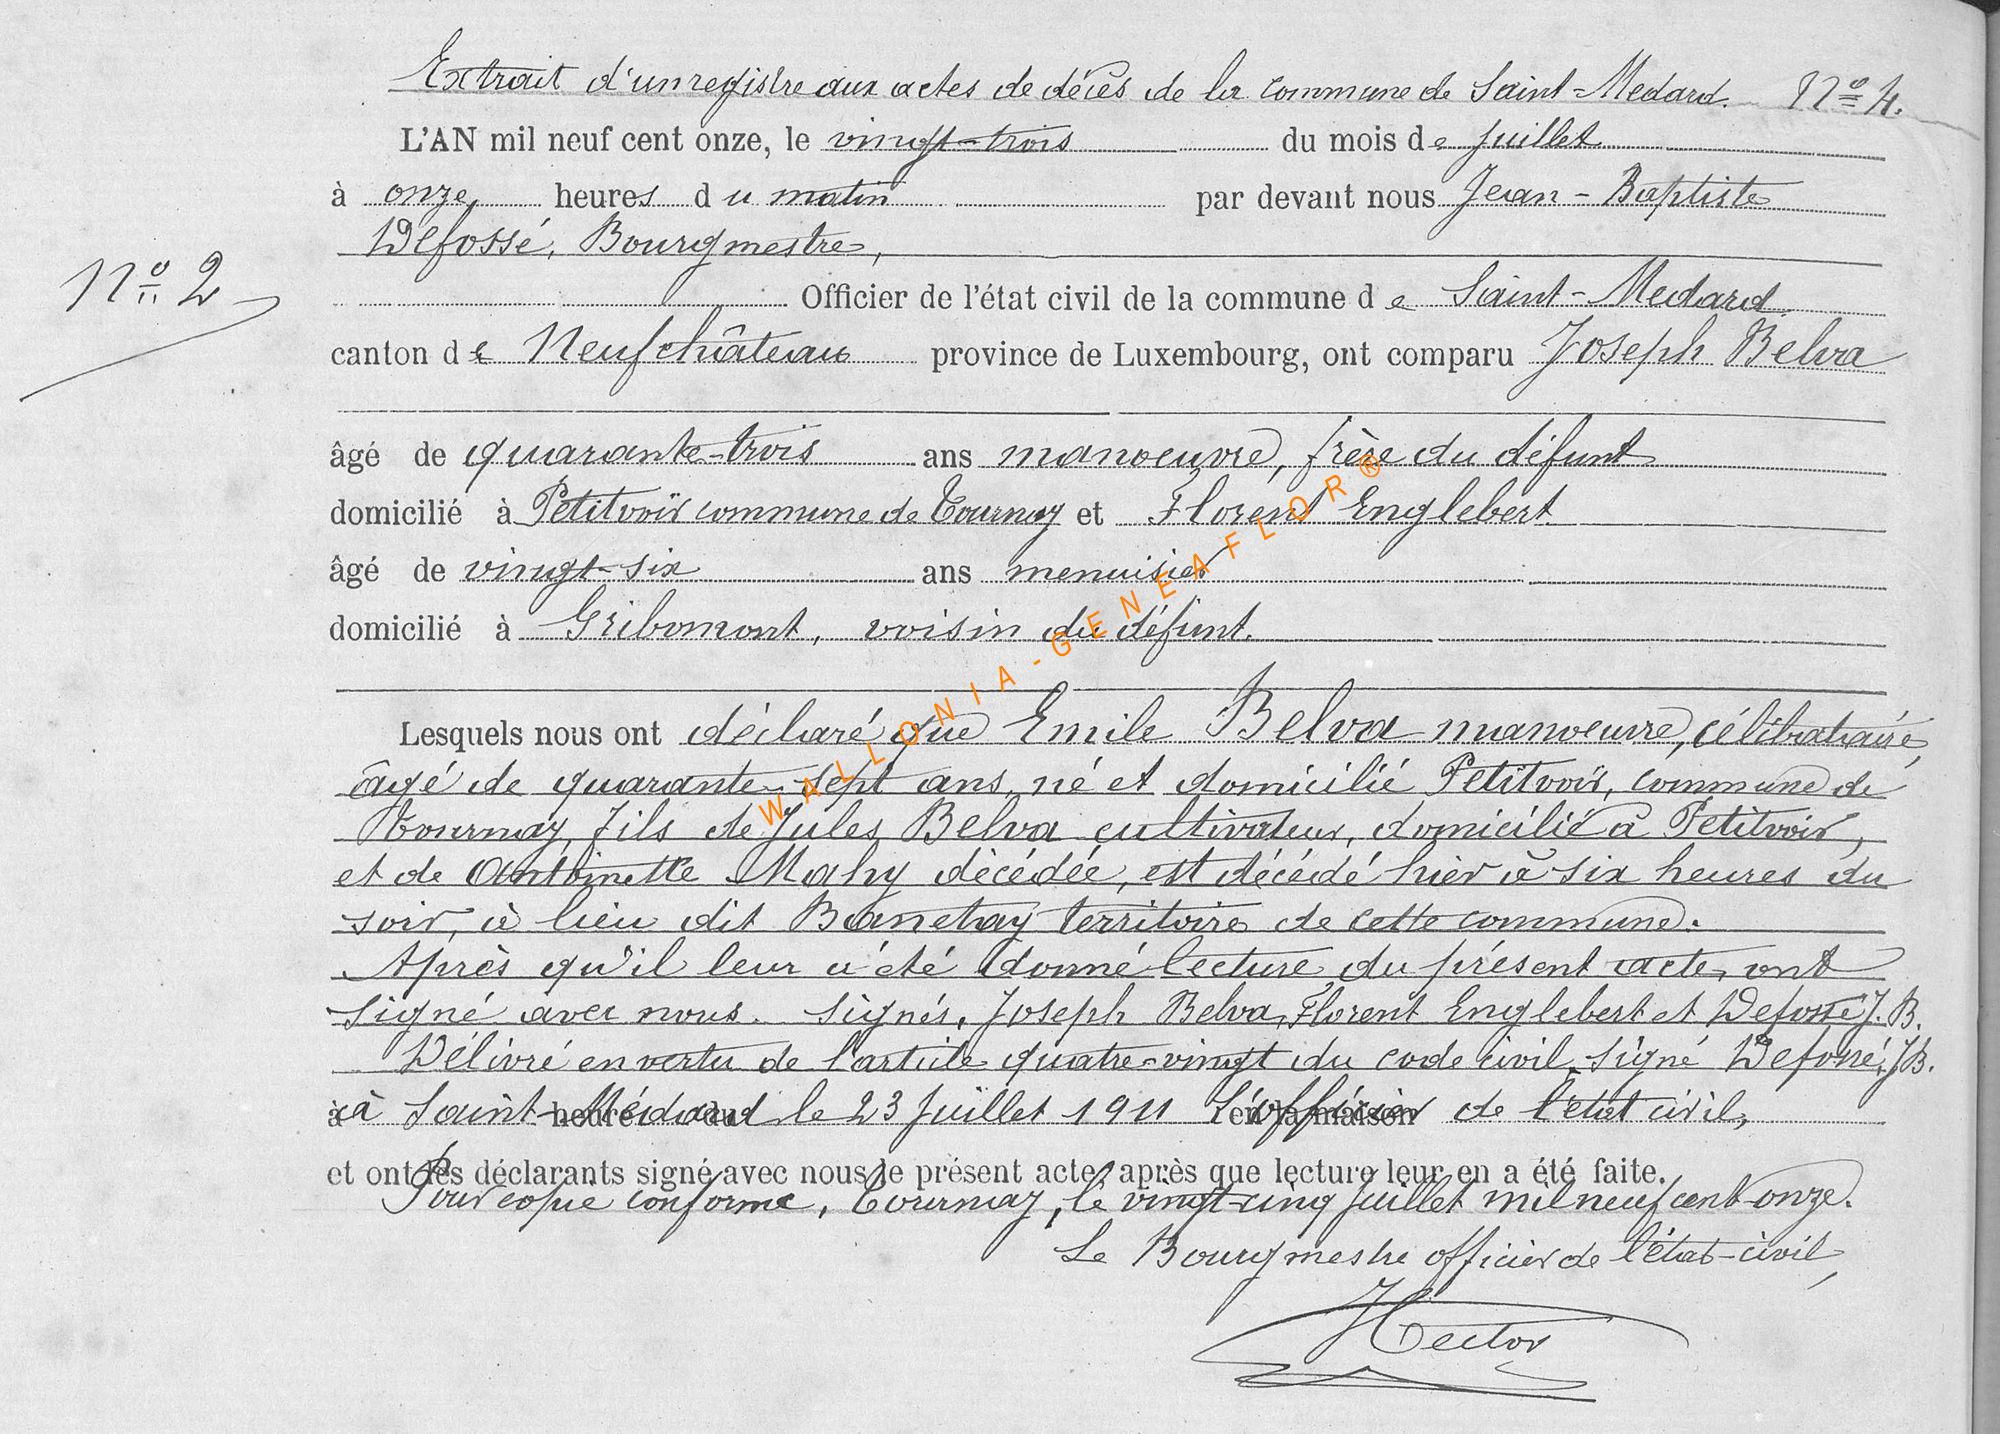 Extrait d'un registre aux actes de décès de la commune de Saint-Medard. Nº 4.
L'AN mil neuf cent onze, le vingt-trois du mois de juillet
à onze heures du matin par devant nous Jean-Baptiste
Defossé, Bourgmestre,
Nº 2
Officier de l'état civil de la commune de Saint-Medard
canton de Neufchâteau province de Luxembourg, ont comparu Joseph Belva
âgé de quarante-trois ans manoeuvre, frère du défunt
domicilié à Petitvoir commune de Tournay et Florent Englebert
âgé de vingt-six ans menuisier
domicilié à Gribomont, voisin du défunt.
Lesquels nous ont déclaré que Emile Belva manoeuvre, célibataire,
âgé de quarante-sept ans, né et domicilié Petitvoir, commune de
Tournay, fils de Jules Belva cultivateur, domicilié à Petitvoir,
et de Antoinette Mahy décédée, est décédé hier à six heures du
soir, à lieu dit Banehay territoire de cette commune.
Après qu'il leur a été donné lecture du présent acte, ont
signé avec nous. Signés, Joseph Belva, Florent Englebert et Defossé J. B.
Délivré en vertu de l'article quatre-vingt du code civil, signé Defossé, J B.
à à Saint-Médard le 23 juillet 1911 L'officier de l'état civil,
heure du en la maison
et ont les déclarants signé avec nous le présent acte, après que lecture leur en a été faite.
Pour copie conforme, Tournay, le vingt-cinq juillet mil neuf cent onze.
Le Bourgmestre officier de l'état-civil,
Hector
WALLONIA-GENEAFLOR®